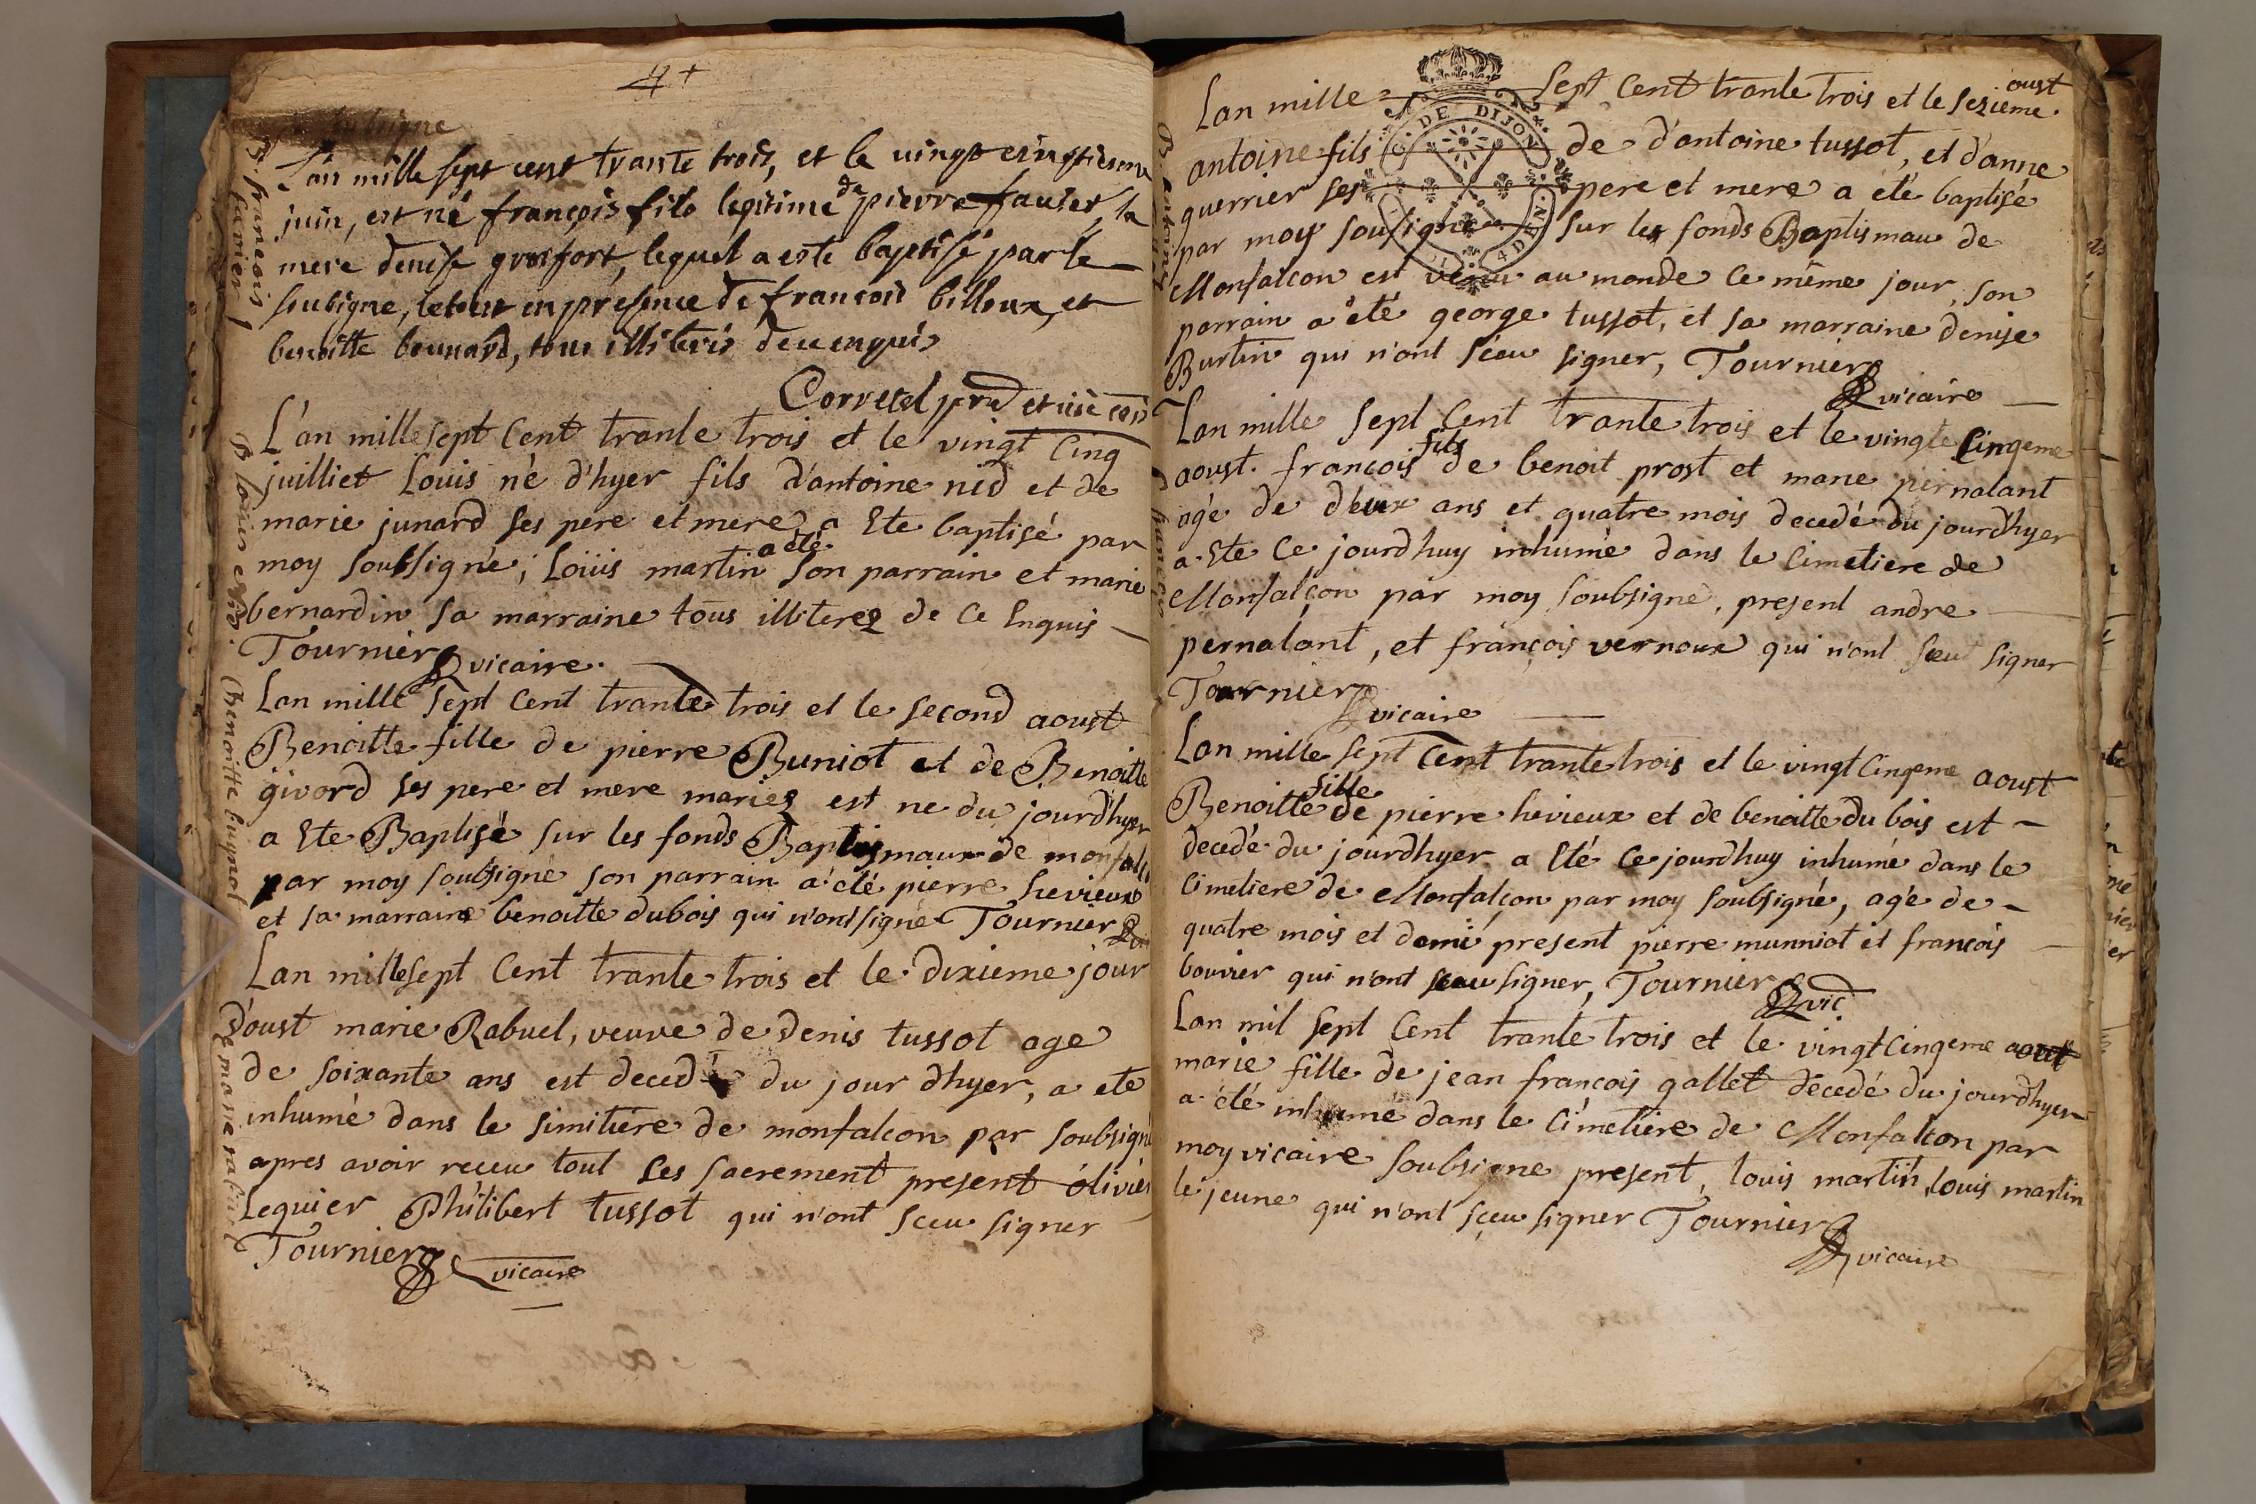 4 +
L'an mille sept cent trante trois, et le vingt cinqtiesme
juin, est né françois fils legitime de pierre fauier, sa
mere denise grosfort, lequel a esté baptisé par le
soubsigne, le tout en présence de francois billoux, et
benoitte bounard, tous illiteris de ce enquis
B. francois favier
L'an mille sept Cent trante trois et le vingt Cinq
juilliet Louis né d'hyer fils d'antoine nid et de
marie junard ses pere et mere, a Ete baptisé par
moy soubsigné; Loüis martin a été son parrain et marie
bernardin sa marraine tous illiterez de Ce Enquis
Tournier vicaire.
B Louis
Lan mille sept Cent trante trois et le second aoust
Benoitte fille de pierre Buniot et de Benoitte
givord ses pere et mere mariez est ne du jourd'hyer
a Ete Baptisé sur les fonds Baptismaux de monfalc
par moy soubsigné son parrain a été pierre hevieux
et sa marraine benoitte dubois qui n'ont signé Tournier
benoitte
Lan mille sept Cent trante trois et le dixieme jour
d'oust marie Rabuel, veuve de Denis tussot age
de soixante ans est decedé du jour dhyer, a eté
inhumé dans le simitiére de monfalcon par soubsigné
apres avoir receu tout ses sacrement present óliviér
Lequier Philibert tussot qui n'ont sceu signer
Tournier vicaire
marie rabuel
Lan mille sept Cent trante trois et le sezieme aoust
G. DE DIJON
4 DEN.
antoine fils de d'antoine tussot, et d'anne
guerrier ses pere et mere a eté baptisé
par moy sousigné sur les fonds Baptismau de
Monfalcon est venu au monde Ce même jour, son
parrain a été george tussot, et sa marraine denise
Burtin qui n'ont sceu signer, Tournier
vicaire
B. antoine
Lan mille sept Cent trante trois et le vingt Cinqeme
aoust. francois fils de benoit prost et marie pernatant
agé de deux ans et quatre mois decedé du jourd'hyer
a Ete Ce jourdhuy inhumé dans le Cimetiere de
Monfalçon par moy soubsigné, present andre
pernatant, et françois vernoux qui n'ont sceut signer
Tournier
vicaire
Lan mille sept Cent trante trois et le vingt Cinqeme aoust
Benoitte fille de pierre hevieux et de benoitte du bois est
decedé du jourdhyer a Eté Ce jourdhuy inhumé dans le
Cimetiere de Monfalçon par moy soubsigné, agé de
quatre mois et demi present pierre munniot et francois
bouvier qui n'ont sceu signer, Tournier
vic
Lan mil sept Cent trante trois et le vingt Cinqeme aout
marie fille de jean francois gallet décedé du jourdhyer
a été inhumé dans le Cimetiére de Monfalcon par
moy vicaire soubsigne present, louis martin, louis martin
le jeune qui n'ont sçeu signer Tournier
vicaire